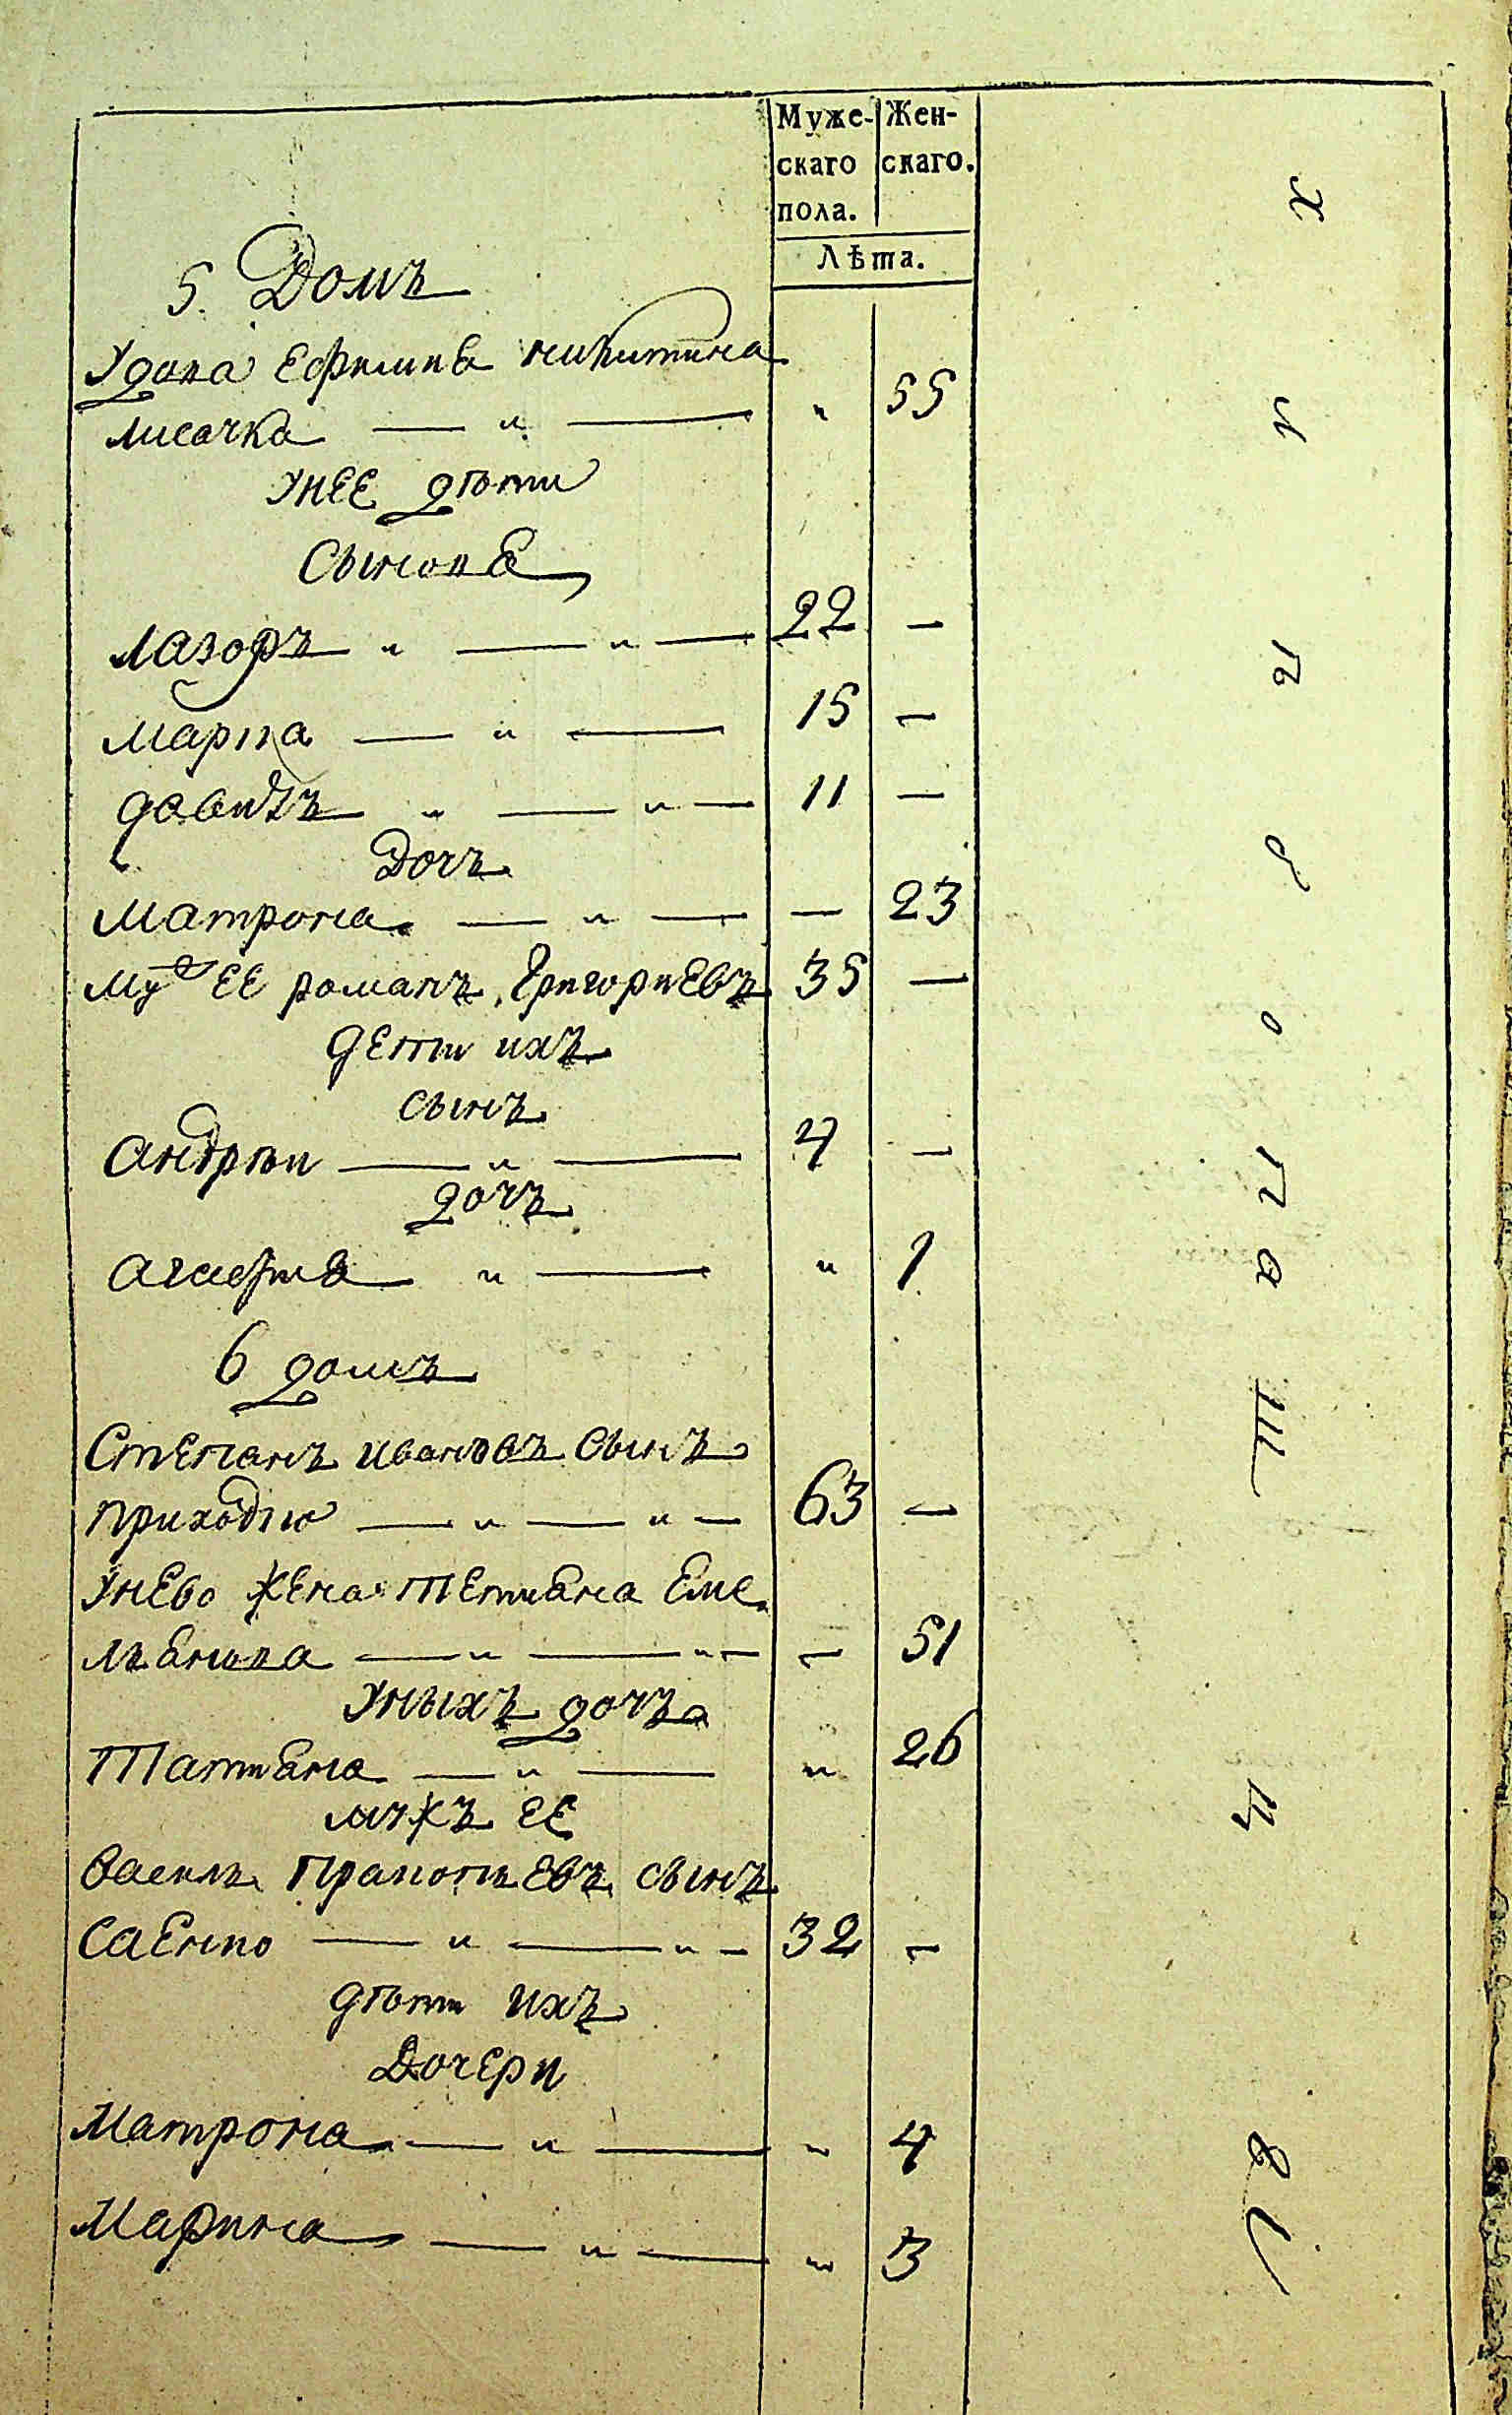 Муже- Жен-
скаго скаго.
пола.
Лѣта.
5. Домъ
Удова Ефимиѣ никитина
лисачка — " — " 55
унее дѣти
Сынова
лазоръ " — " — 22 —
марпа — " — 15 —
давидъ " — " — 11 —
Дочъ
матрона — " — — 23
му ее романъ Григориевъ 35 —
дети ихъ
сынъ
андрѣи — " — 4 —
дочъ
агафиѣ " — " 1
6 домъ
Степанъ ивановъ сынъ
приходко — " — " — 63 —
унево жена тетиѣна Еме
лѣнова — " — " — — 51
уныхъ дочъ
Татиѣна — " — " 26
мужъ ее
василь Пракопьевъ сынъ
саенко — " — " — 32 —
дѣти ихъ
Дочери
матрона — " — " 4
Марина — " — " 3